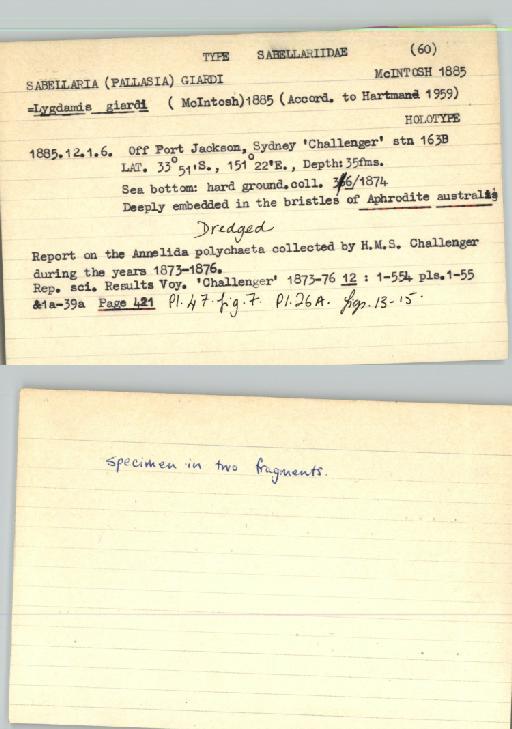 TYPE SABELLARIIDAE (60)
SABELLARIA (PALLASIA) GIARDI McINTOSH 1885
=Lygdamis giardi ( McIntosh)1885 (Accord. to Hartmand 1959)
HOLOTYPE
1885.12.1.6. Off Port Jackson, Sydney 'Challenger' stn 163B
LAT. 33°51'S., 151°22'E., Depth:35fms.
Sea bottom: hard ground.coll. 3/6/1874
Deeply embedded in the bristles of Aphrodite australis
Dredged
Report on the Annelida polychaeta collected by H.M.S. Challenger
during the years 1873-1876.
Rep. sci. Results Voy. 'Challenger' 1873-76 12 : 1-554 pls.1-55
&1a-39a Page 421 Pl. 47. fig. 7. Pl. 26A. figs. 13-15.
Specimen in two fragments.